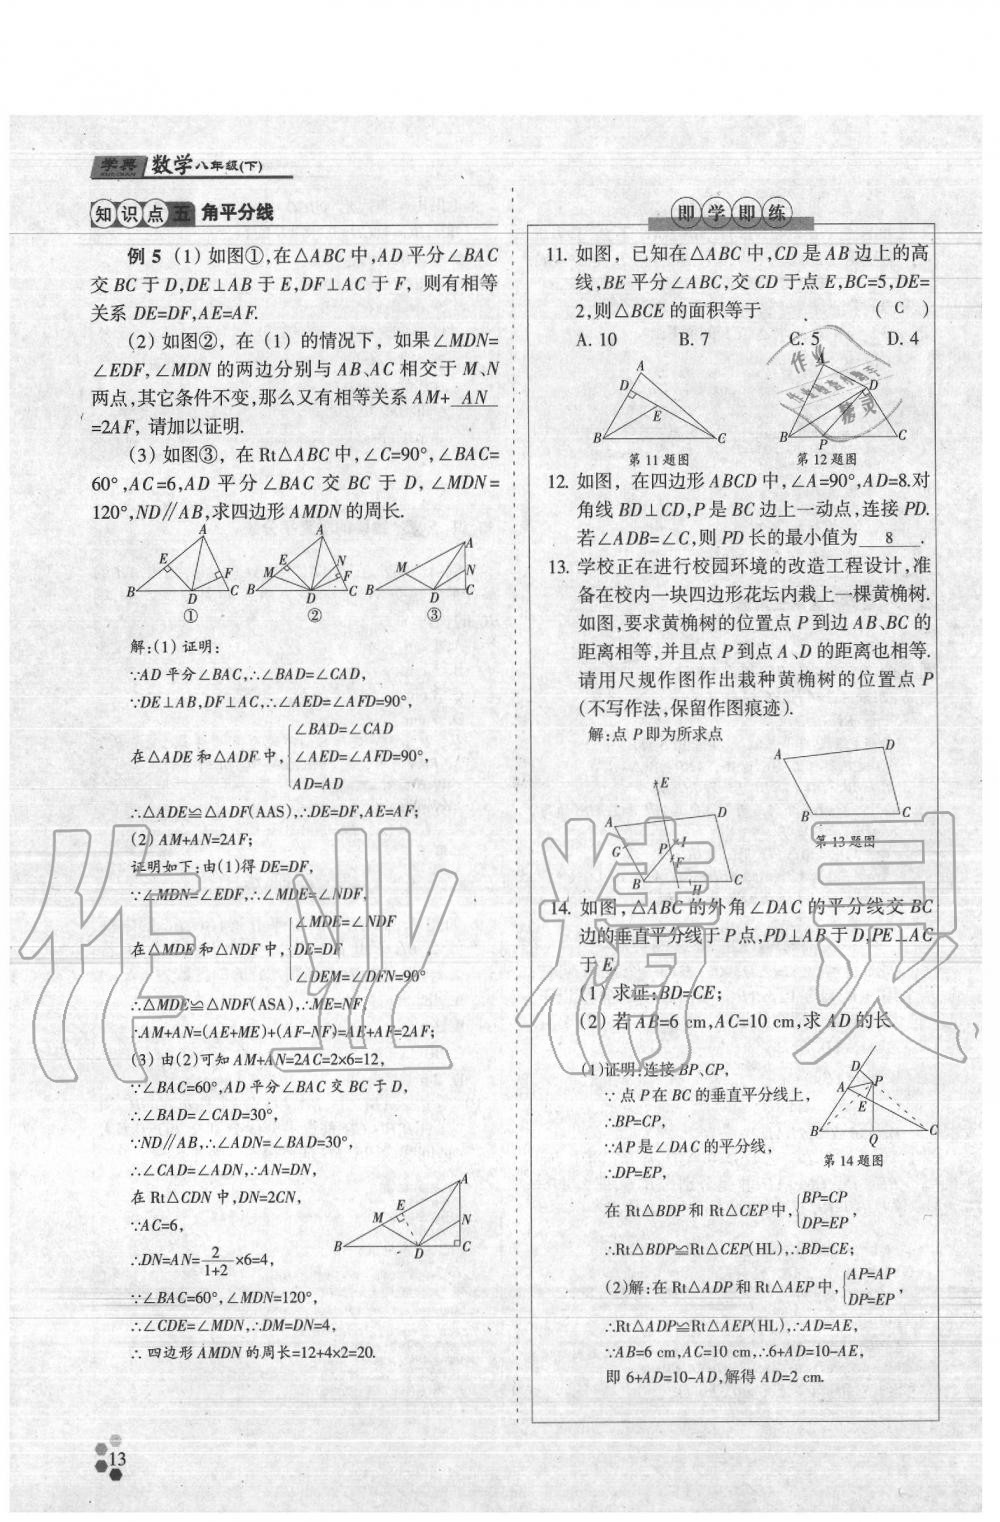 学典 数学八年级(下)
知识点五 角平分线
例5 (1) 如图①,在△ABC 中,AD 平分∠BAC
交 BC 于 D,DE⊥AB 于 E,DF⊥AC 于 F, 则有相等
关系 DE=DF,AE=AF.
(2) 如图②, 在 (1) 的情况下, 如果∠MDN=
∠EDF,∠MDN 的两边分别与 AB、AC 相交于 M、N
两点,其它条件不变,那么又有相等关系 AM+ AN
=2AF, 请加以证明.
(3) 如图③, 在 Rt△ABC 中,∠C=90°,∠BAC=
60°,AC=6,AD 平分∠BAC 交 BC 于 D,∠MDN=
120°,ND∥AB,求四边形 AMDN 的周长.
A E F B D C ①
A E N M F B D C ②
A M N B D C ③
解:(1) 证明:
∵AD 平分∠BAC,∴∠BAD=∠CAD,
∵DE⊥AB,DF⊥AC,∴∠AED=∠AFD=90°,
∠BAD=∠CAD
在△ADE 和△ADF 中, ∠AED=∠AFD=90°,
AD=AD
∴△ADE≌△ADF(AAS),∴DE=DF,AE=AF;
(2) AM+AN=2AF;
证明如下:由(1)得 DE=DF,
∵∠MDN=∠EDF,∴∠MDE=∠NDF,
∠MDE=∠NDF
在△MDE 和△NDF 中, DE=DF ,
∠DEM=∠DFN=90°
∴△MDE≌△NDF(ASA),∴ME=NF,
∴AM+AN=(AE+ME)+(AF-NF)=AE+AF=2AF;
(3) 由(2)可知 AM+AN=2AC=2×6=12,
∵∠BAC=60°,AD 平分∠BAC 交 BC 于 D,
∴∠BAD=∠CAD=30°,
∵ND∥AB,∴∠ADN=∠BAD=30°,
∴∠CAD=∠ADN,∴AN=DN,
在 Rt△CDN 中,DN=2CN,
∵AC=6,
∴DN=AN= 2/(1+2) ×6=4,
∵∠BAC=60°,∠MDN=120°,
∴∠CDE=∠MDN,∴DM=DN=4,
∴四边形 AMDN 的周长=12+4×2=20.
A E M N B D C
13
即学即练
11. 如图, 已知在△ABC 中,CD 是 AB 边上的高
线,BE 平分∠ABC,交 CD 于点 E,BC=5,DE=
2,则△BCE 的面积等于 ( C )
A. 10 B. 7 C. 5 D. 4
A D E B C
A D B P C
第 11 题图 第 12 题图
12. 如图, 在四边形 ABCD 中,∠A=90°,AD=8.对
角线 BD⊥CD,P 是 BC 边上一动点,连接 PD.
若∠ADB=∠C,则 PD 长的最小值为 8 .
13. 学校正在进行校园环境的改造工程设计,准
备在校内一块四边形花坛内栽上一棵黄桷树.
如图,要求黄桷树的位置点 P 到边 AB、BC 的
距离相等,并且点 P 到点 A、D 的距离也相等.
请用尺规作图作出栽种黄桷树的位置点 P
(不写作法,保留作图痕迹).
解:点 P 即为所求点
A D B C
第 13 题图
E A D G P I F B H C
14. 如图,△ABC 的外角∠DAC 的平分线交 BC
边的垂直平分线于 P 点,PD⊥AB 于 D,PE⊥AC
于 E.
(1) 求证:BD=CE;
(2) 若 AB=6 cm,AC=10 cm,求 AD 的长.
(1)证明:连接 BP、CP,
∵点 P 在 BC 的垂直平分线上,
∴BP=CP,
∵AP 是∠DAC 的平分线,
∴DP=EP,
D A P E B Q C
第 14 题图
在 Rt△BDP 和 Rt△CEP 中, BP=CP
DP=EP ,
∴Rt△BDP≌Rt△CEP(HL),∴BD=CE;
(2)解:在 Rt△ADP 和 Rt△AEP 中, AP=AP
DP=EP ,
∴Rt△ADP≌Rt△AEP(HL),∴AD=AE,
∵AB=6 cm,AC=10 cm,∴6+AD=10-AE,
即 6+AD=10-AD,解得 AD=2 cm.
作业精灵